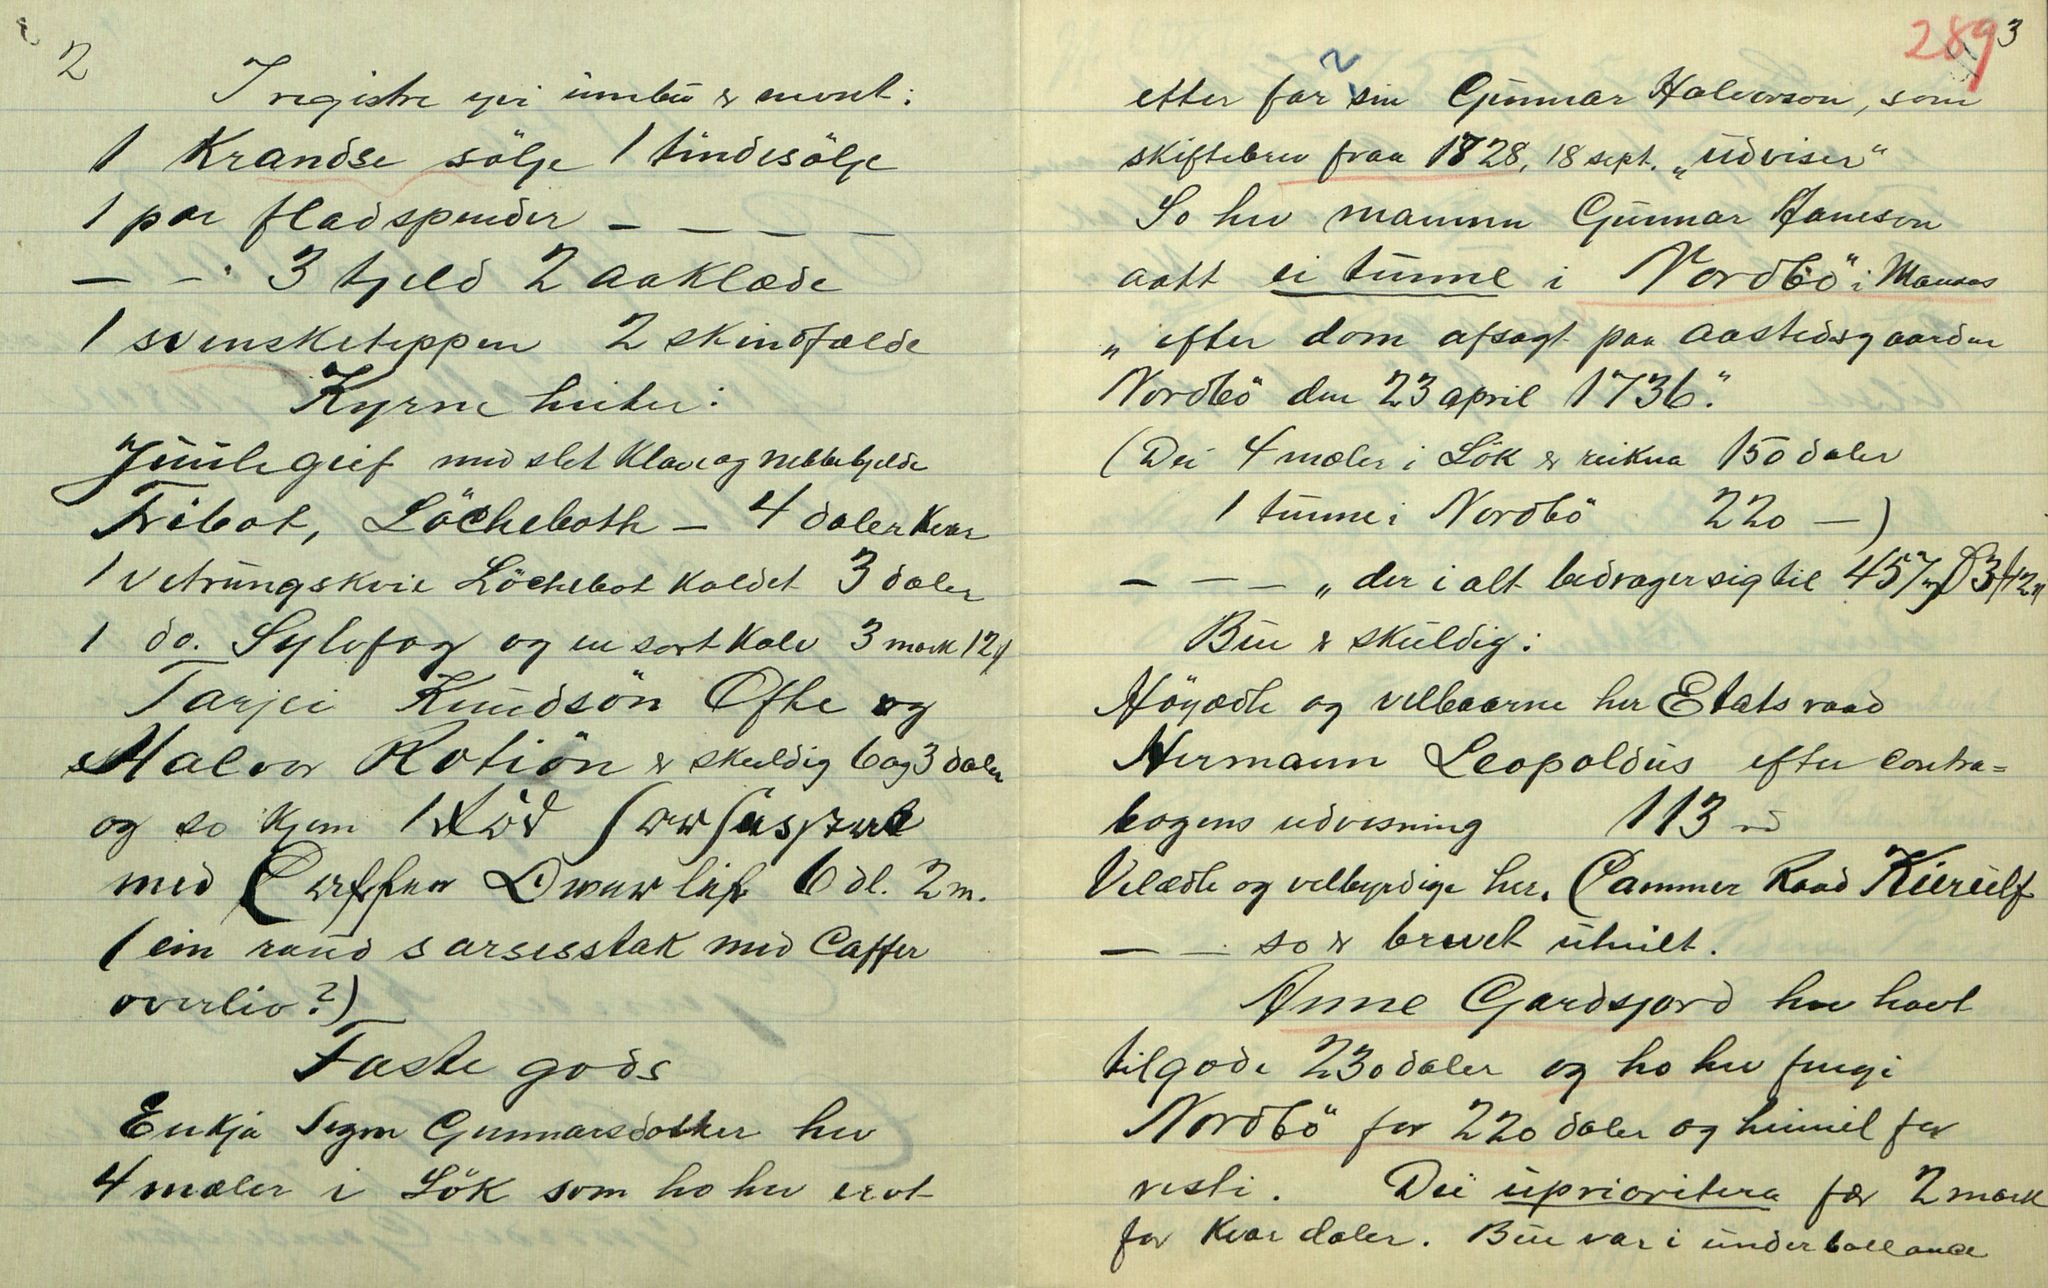 2
I registre yvi innbu er nemnt:
1 Krandse sölje 1 tindesölje
1 par fladspender — — — —
— — . 3 tjeld 2 aaklæde
1 svensketeppen 2 skindfælde
Kyrne heiter:
Juulegief med slet Klave og nebbebjelde
Fribot, Löcheboth — 4 daler kvar
1 vetrungskvie Löchebot kaldet 3 daler
1 do. Sylvfag og en sort Kalv 3 mark 12 s
Tarjei Knudsön Ofte og
Halvor Rotiön er skuldig 6 og 3 daler
og so kjem 1
med 6 dl. 2 m.
(ein raud sarsesstak med Caffer
overliv?)
Faste gods
Enkja Sigre Gunnarsdotter hev
4 mæler i Lök som ho hev ervt
289 3
etter far sin Gunnar Halvorson, som
skiftebrev fraa 1728, 18 sept. „udviser"
So hev mannen Gunnar Hanson
aatt ei tunne i Nordbö" i Mausas
„efter dom afsagt paa aastedsgaarden
Nordbö den 23 april 1736".
(Dei 4 mæler i Lök er reikna 150 daler
1 tunne i Nordbö 220 —)
— — — „der i alt bedrager sig til 457
Buu er skuldig:
Höyædle og velbaarne her Etatsraad
Hermann Leopoldus efter contra=
bogens udvisning 113 rd
Velædle og velbyrdige her. Cammer Raad Kierulf
— — so er brevet utvilt.
Anne Gardsjord hev havt
tilgode 230 daler og ho hev fengi
Nordbö for 220 daler og heimel for
resti. Dei uprioritera fær 2 mark
for kvar daler. Buu var i underballance